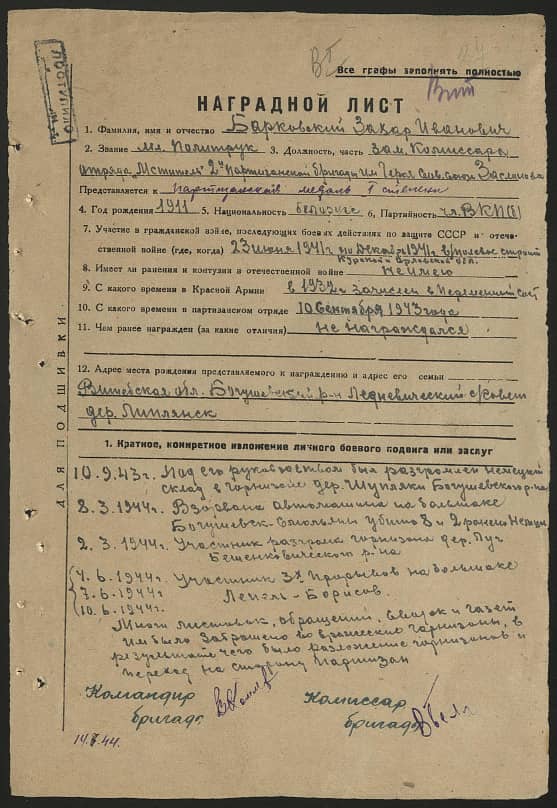 Все графы заполнять полностью
НАГРАДНОЙ ЛИСТ
1. Фамилия, имя и отчество Барковский Захар Иванович
2. Звание мл. Политрук 3. Должность, часть зам. Комиссара
отряда "Мститель" 2й Партизанской бригады им Героя Сов. Союза Заслонова
Представляется к партизанской медаль I степени
4. Год рождения 1911 5. Национальность белорус 6. Партийность чл. ВКП(б)
7. Участие в гражданской войне, последующих боевых действиях по защите СССР и отече-
чественной войне (где, когда) 23 июня 1941 г по Декабрь 1941 г. в
Курской и Орловской обл.
8. Имеет ли ранения и контузии в отечественной войне не имею
9. С какого времени в Красной Армии в 1932 г зачислен в
10. С какого времени в партизанском отряде 10 Сентября 1943 года
11. Чем ранее награжден (за какие отличия) не награждался
12. Адрес места рождения представляемого к награждению и адрес его семьи
Витебская обл. Богушевский р-н Ледневический с/совет
дер. Липлянск
ДЛЯ ПОДШИВКИ
1. Краткое, конкретное изложение личного боевого подвига или заслуг
10.9.43 г. Под его руководством был разгромлен немецкий
склад в гарнизоне дер. Шупляки Богушевского р-на
8.3.1944 г. Взорвана автомашина на большаке
Богушевск-Смольяны убито 8 и 2 ранено Немцы
2.3.1944 г. Участник разгрома гарнизона дер. Пуч
Бешенковического р-на
4.6.1944 г. Участник 3х Прорывов на большаке
7.6.1944 г. Лепель-Борисов.
10.6.1944 г.
Много листовок, обращений, сводок и газет
им было заброшено во вражеские гарнизоны, в
результате чего было разложение гарнизонов и
переход на сторону Партизан
Командир Комиссар
бригады бригады
14.7.44.